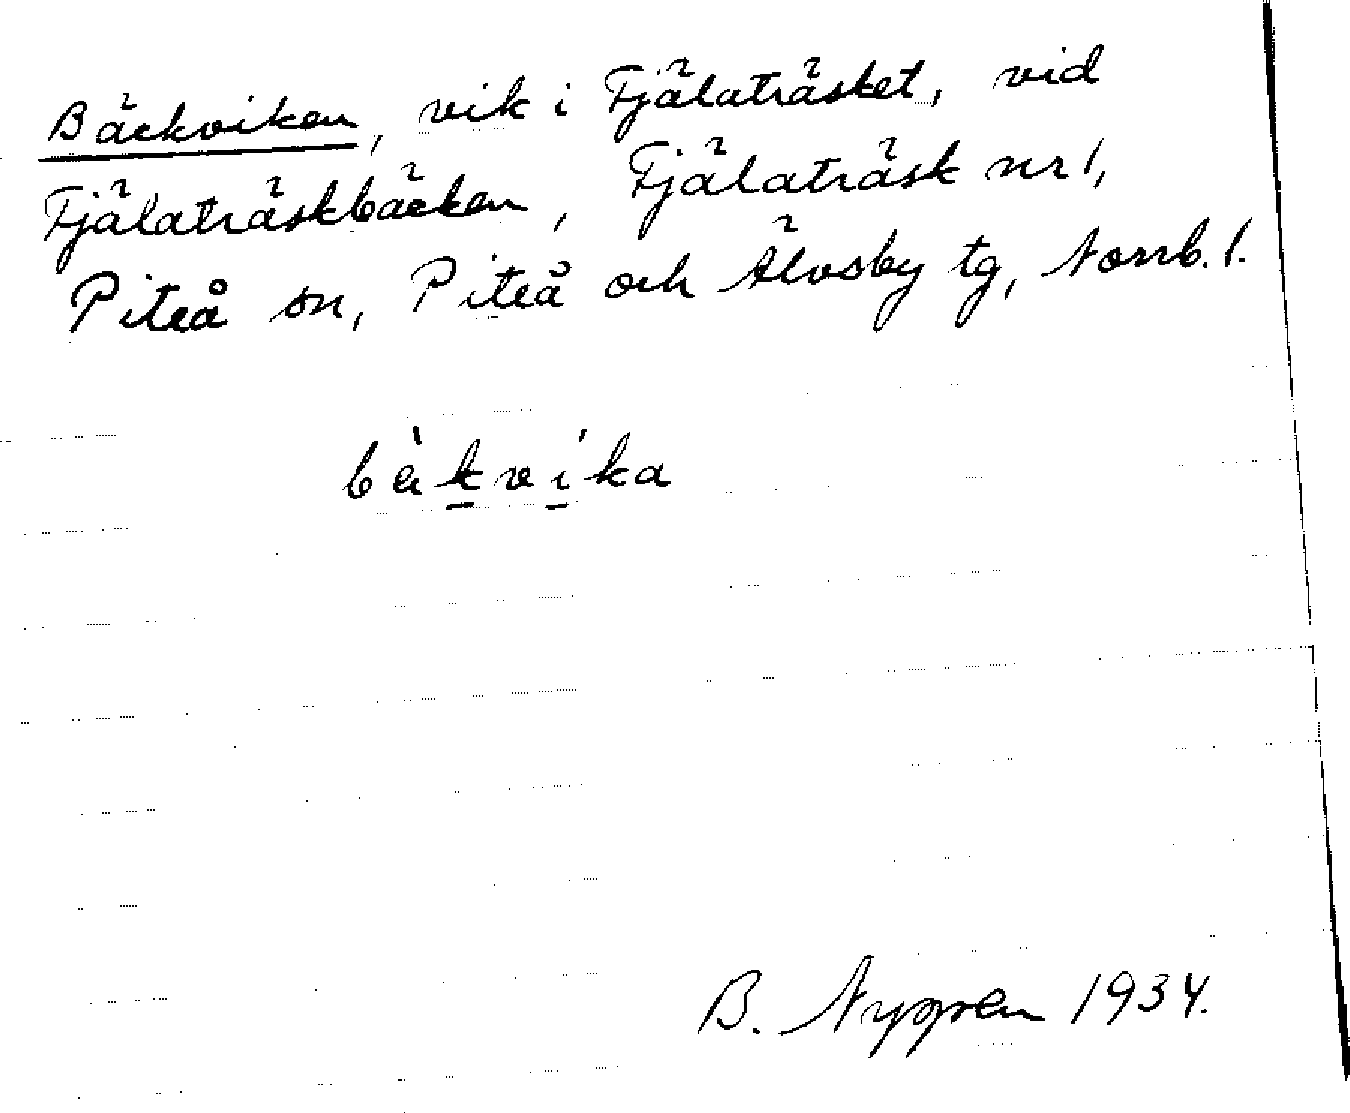 Bäckviken, vik i Fjälaträsket, vid
Fjälaträskbäcken, Fjälaträsk nr 1,
Piteå sn, Piteå och Älvsby tg, Norrb. l.
bä̀kvíka
B. Nygren 1934.